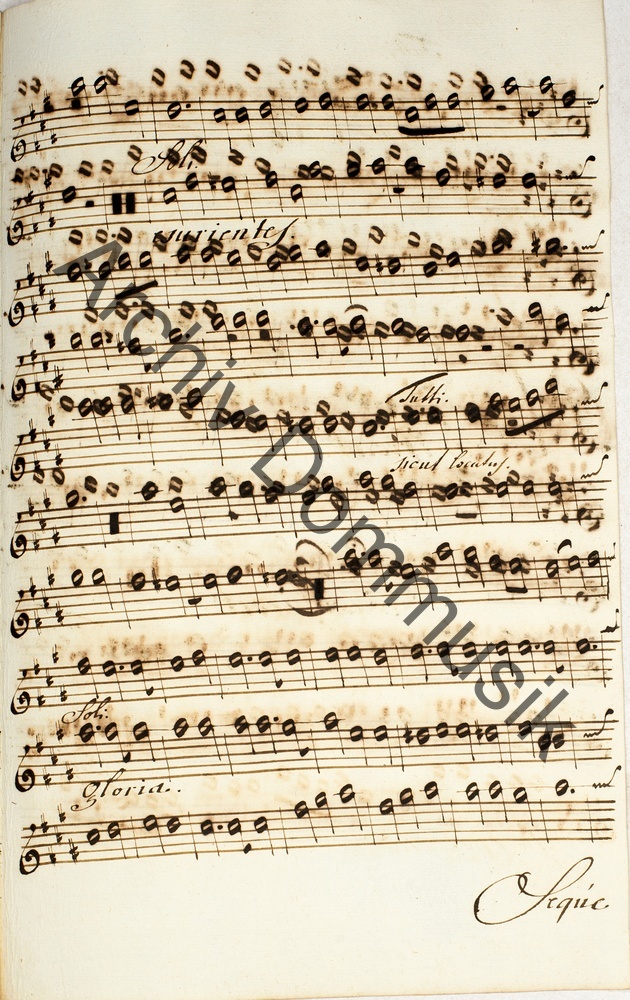 Soli.
esurientes.
Tutti.
sicut locutus.
Soli.
gloria.
Seque
Archiv Dommusik